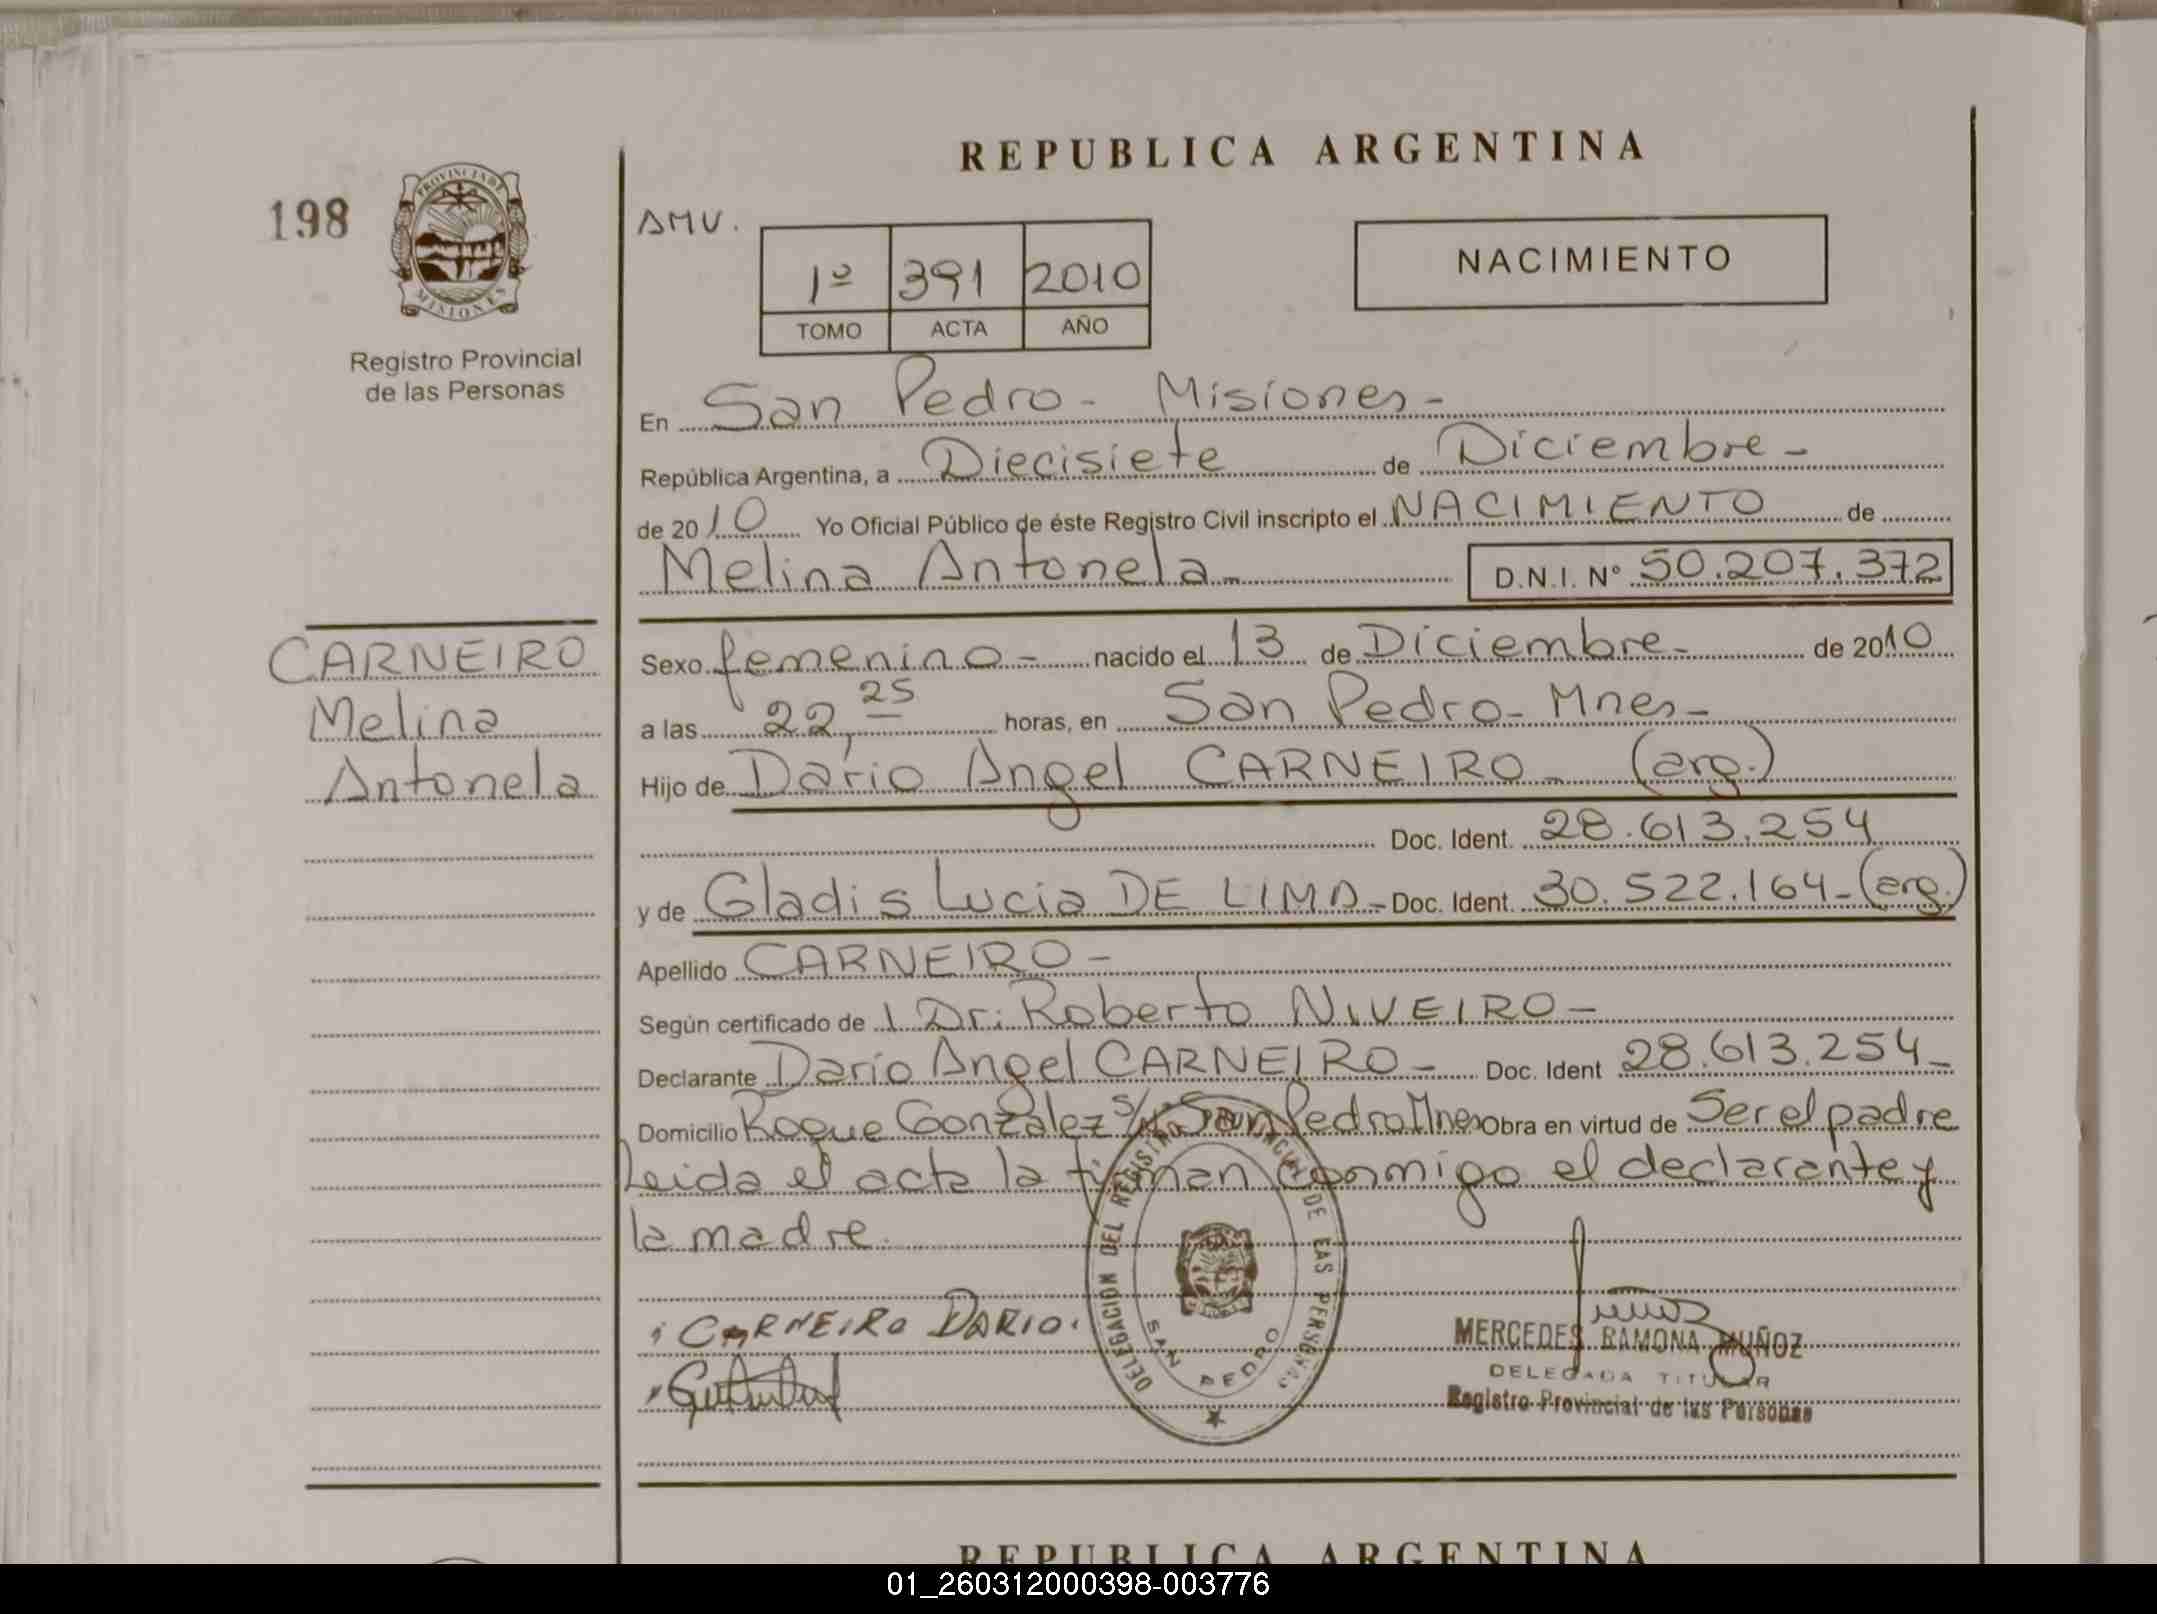 REPUBLICA ARGENTINA
198
PROVINCIA DE
MISIONES
Registro Provincial
de las Personas
AMV.
1º 391 2010
TOMO ACTA AÑO
NACIMIENTO
En San Pedro - Misiones -
República Argentina, a Diecisiete de Diciembre -
de 2010 Yo Oficial Público de éste Registro Civil inscripto el NACIMIENTO de
Melina Antonela - D.N.I. Nº 50.207.372
CARNEIRO
Melina
Antonela
Sexo femenino - nacido el 13 de Diciembre - de 2010
a las 22,25 horas, en San Pedro - Mnes -
Hijo de Dario Angel CARNEIRO - (arg.)
Doc. Ident. 28.613.254
y de Gladis Lucia DE LIMA - Doc. Ident. 30.522.164 - (arg.)
Apellido CARNEIRO -
Según certificado de 1 Dr. Roberto NIVEIRO -
Declarante Dario Angel CARNEIRO - Doc. Ident 28.613.254 -
Domicilio Roque Gonzalez s/nº San Pedro Mnes Obra en virtud de Ser el padre
Leida el acta la firman conmigo el declarante y
la madre.
CARNEIRO DARIO.
DELEGACION DEL REGISTRO PROVINCIAL DE LAS PERSONAS
SAN PEDRO
MERCEDES RAMONA MUÑOZ
DELEGADA TITULAR
Registro Provincial de las Personas
REPUBLICA ARGENTINA
01_260312000398-003776